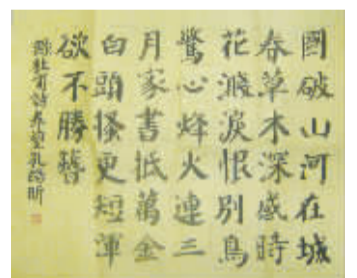 國破山河在城
春草木深感時
花濺淚恨別鳥
驚心烽火連三
月家書抵萬金
白頭搔更短渾
欲不勝簪